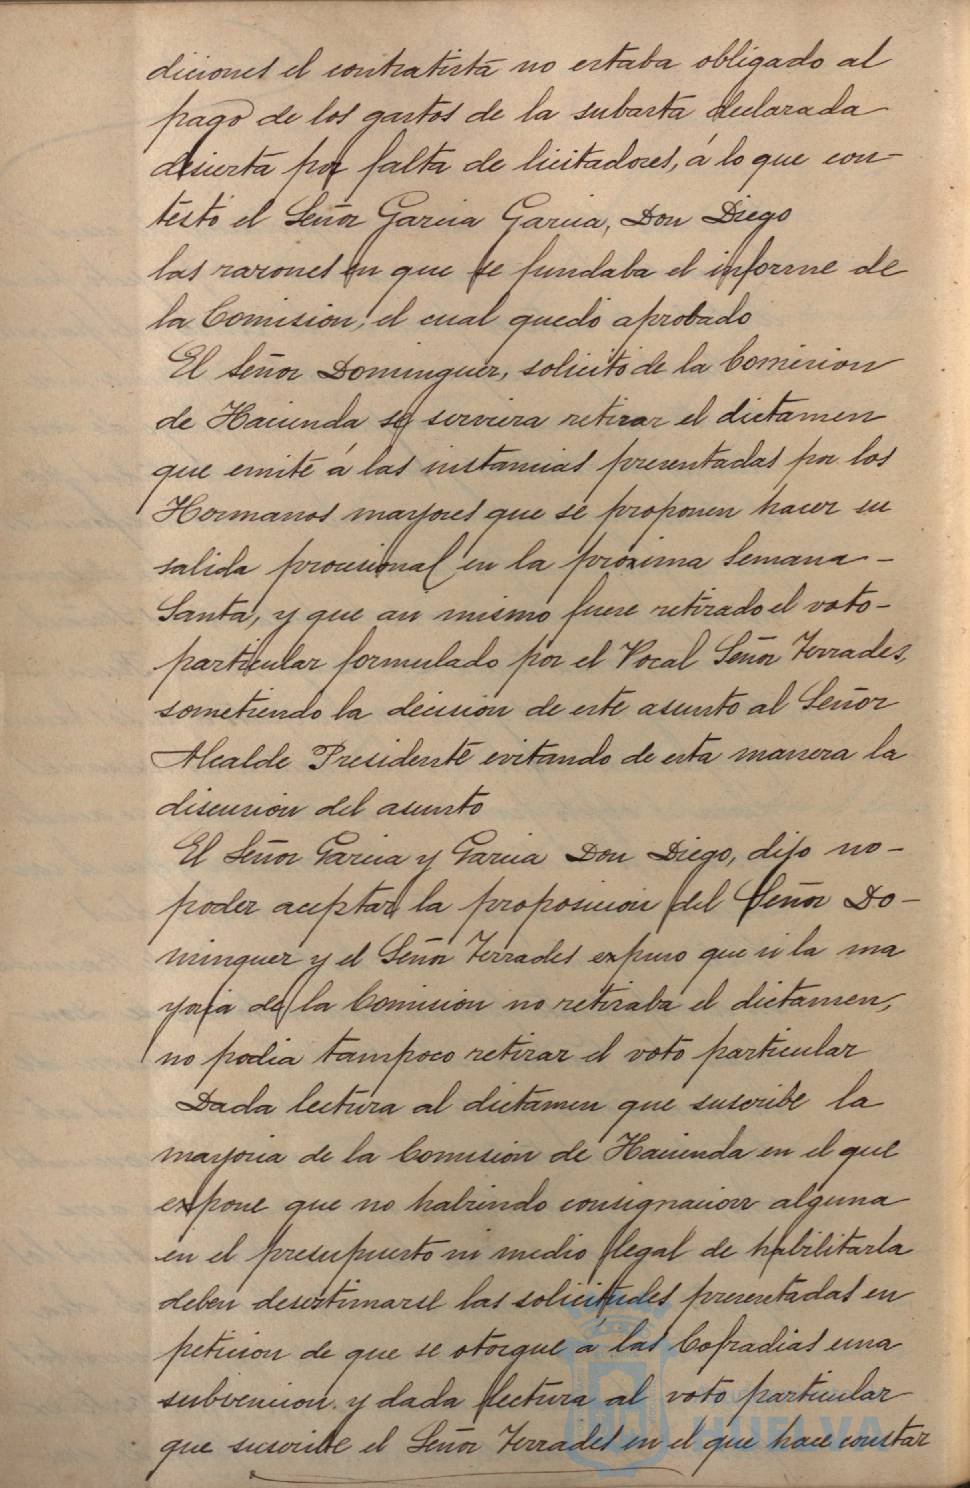 diciones el contratista no estaba obligado al
pago de los gastos de la subasta declarada
desierta por falta de licitadores, á lo que con-
testó el Señor Garcia Garcia, Don Diego
las razones en que se fundaba el informe de
la Comision, el cual quedó aprobado
El Señor Dominguez, solicitó de la Comision
de Hacienda se sirviera retirar el dictamen
que emite á las instancias presentadas por los
Hermanos mayores que se proponen hacer su
salida procesional en la próxima Semana-
Santa, y que asi mismo fuese retirado el voto-
particular formulado por el Vocal Señor Terrades,
sometiendo la decision de este asunto al Señor
Alcalde Presidente evitando de esta manera la
discusion del asunto
El Señor Garcia y Garcia Don Diego, dijo no-
poder aceptar la proposicion del Señor Do-
minguez y el Señor Terrades expuso que si la ma
yoria de la Comision no retiraba el dictamen,
no podia tampoco retirar el voto particular
Dada lectura al dictamen que suscribe la
mayoria de la Comision de Hacienda en el que
expone que no habiendo consignacion alguna
en el presupuesto ni medio legal de habilitarla
deben desestimarse las solicitudes presentadas en
peticion de que se otorgue á las Cofradias una
subvencion y dada lectura al voto particular
que suscribe el Señor Terrades en el que hace constar
HUELVA